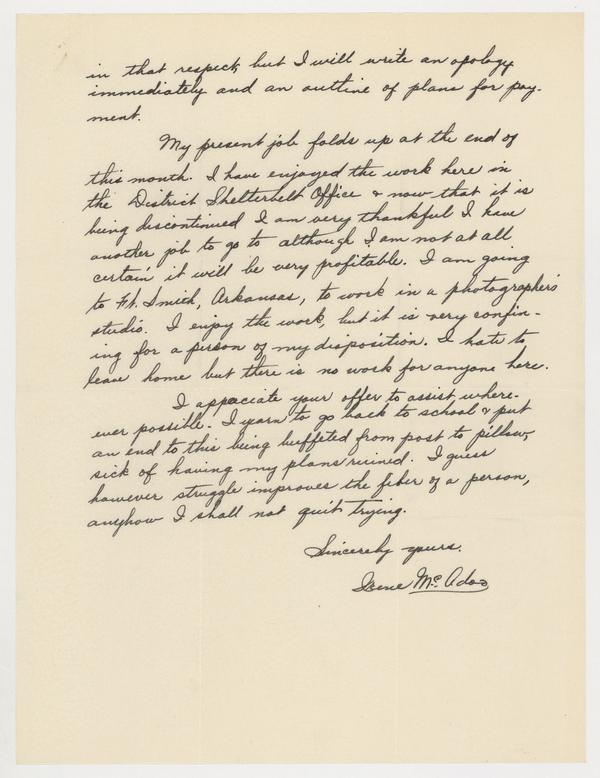 in that respect, but I will write an apology
immediately and an outline of plans for pay-
ment.
My present job folds up at the end of
this month. I have enjoyed the work here in
the District Shelterbelt Office & now that it is
being discontinued I am very thankful I have
another job to go to although I am not at all
certain it will be very profitable. I am going
to Ft. Smith, Arkansas, to work in a photographers'
studio. I enjoy the work, but it is very confin-
ing for a person of my disposition. I hate to
leave home but there is no work for anyone here.
I appaciate your offer to assist where-
ever possible. I yearn to go back to school & put
an end to this being buffeted from post to pillow,
sick of having my plans ruined. I guess
however struggle improves the fiber of a person,
anyhow I shall not quit trying.
Sincerely yours.
Irene McAdoo